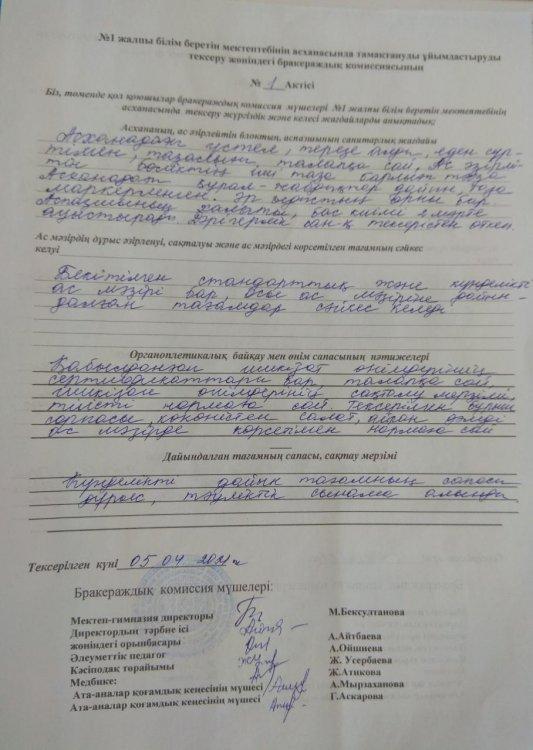 №1 жалпы білім беретін мектептебінің асханасында тамақтануды ұйымдастыруды
тексеру жөніндегі бракераждық комиссиясының
№ 1 Актісі
Біз, төменде қол қоюшылар бракераждық комиссия мүшелері №1 жалпы білім беретін мектептебінің
асханасында тексеру жүргіздік және келесі жағдайларды анықтадық:
Асхананың, ас әзірлейтін блоктың, аспазшының санитарлық жағдайы
Асханадағы үстеле, терезе алды, еден сүр-
тілген, тазалығы талапқа сай. Ас әзірлей-
тін бөлактің іші таза барлығы таза.
Асханадағы құрал-жабдықтар дайын, таза
маркерленген. Әр заттың орны бар.
Аспазшының халаты, бас киімі 2 мәрте
ауыстырады. Дәрігерлік сан-қ тексерістен өткен.
Ас мәзірдің дұрыс әзірленуі, сақталуы және ас мәзірдегі көрсетілген тағамның сәйкес
келуі
Бекітілген стандарттық және күнделікті
ас мәзірі бар, осы ас мәзіріне дайын-
далған тағамдар сәйкес келеді
Органоплетикалық байқау мен өнім сапасының нәтижелері
Қабылданған шикізат өнімдерінің
сертивадикаттары бар, талапқа сай,
шикізат өнімдерінің сақталу мерзімі,
тиісті нормаға сай. Тексерілген күнгі
сорпасы, көкөністен салат, айран дәмді
ас мәзірде көрсетілген нормаға сай
Дайындалған тағамның сапасы, сақтау мерзімі
Күнделікті дайын тағамның сапасы
дұрыс, тәуліктік сынама алынды
Тексерілген күні 05 04 2021ж
Бракераждық комиссия мүшелері:
Мектеп-гимназия директоры М.Бексултанова
Директордың тәрбие ісі
жөніндегі орынбасары А.Айтбаева
Әлеуметтік педагог А.Ойшиева
Кәсіподақ төрайымы Ж. Усербаева
Медбике: Ж.Атикова
Ата-аналар қоғамдық кеңесінің мүшесі А.Мырзаханова
Ата-аналар қоғамдық кеңесінің мүшесі Г.Аскарова